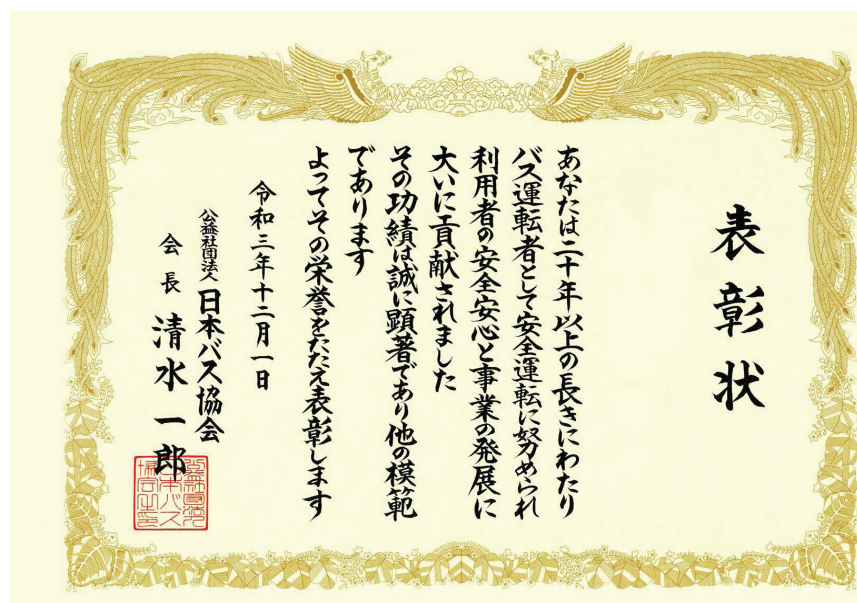 表彰状
あなたは二十年以上の長きにわたり
バス運転者として安全運転に努められ
利用者の安全安心と事業の発展に
大いに貢献されました
その功績は誠に顕著であり他の模範
であります
よってその栄誉をたたえ表彰します
令和三年十二月一日
公益社団法人日本バス協会
会長 清水一郎